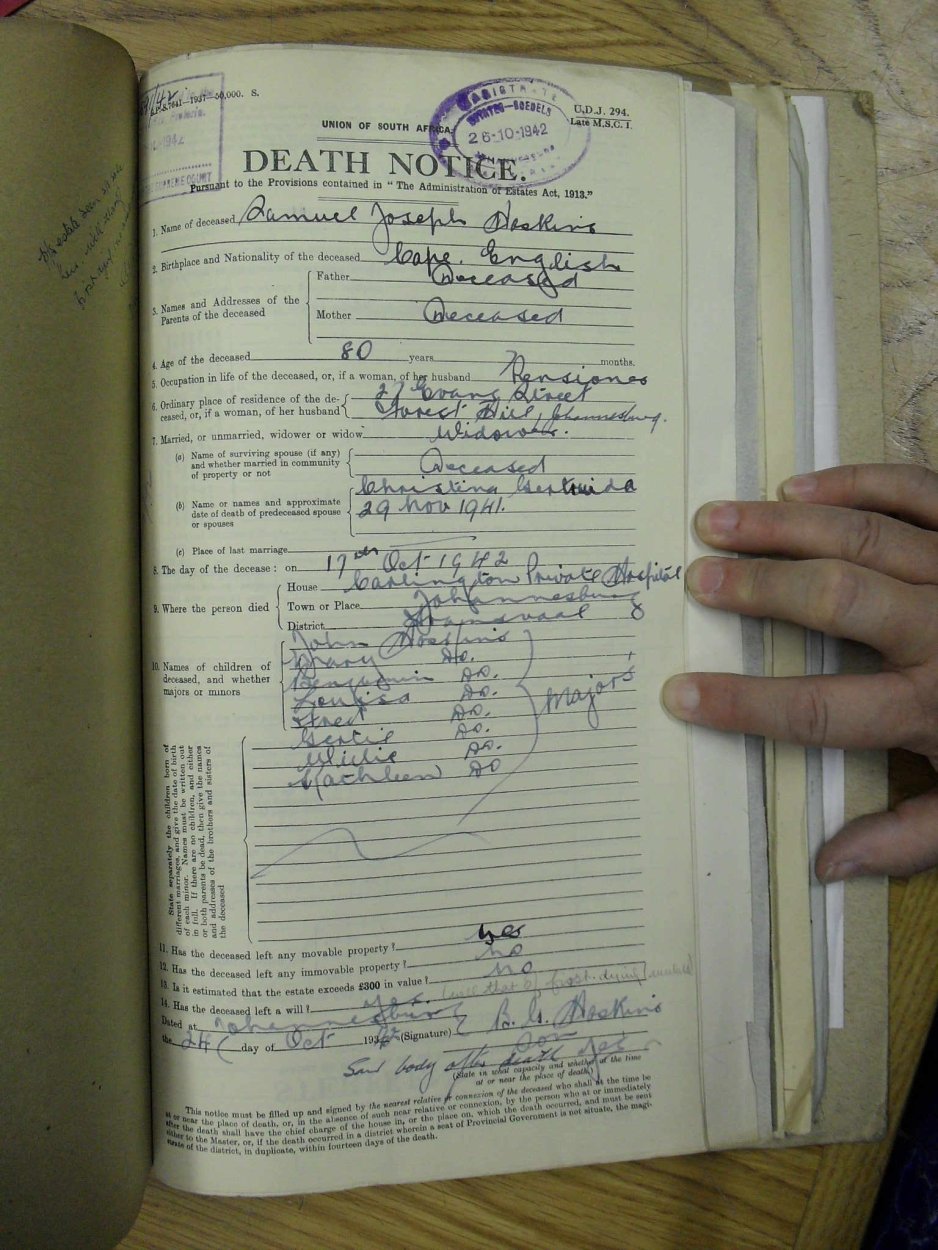 U.D.J. 294.
Late M.S.C. 1.
7641—1937—50,000. S.
1942
SUPREME COURT
MAGISTRATE
26-10-1942
UNION OF SOUTH AFRICA.
DEATH NOTICE.
Pursuant to the Provisions contained in "The Administration of Estates Act, 1913."
1. Name of deceased Samuel Joseph Hoskins
2. Birthplace and Nationality of the deceased Cape. English
3. Names and Addresses of the Parents of the deceased
Father Deceased
Mother Deceased
4. Age of the deceased 80 years 7 months.
5. Occupation in life of the deceased, or, if a woman, of her husband Pensioner
6. Ordinary place of residence of the de-
ceased, or, if a woman, of her husband
27 Evans Street
Forest Hill, Johannesburg.
7. Married, or unmarried, widower or widow Widower.
(a) Name of surviving spouse (if any)
and whether married in community
of property or not
Deceased
(b) Name or names and approximate
date of death of predeceased spouse
or spouses
Christina Gertruida
29 Nov 1941.
(c) Place of last marriage
8. The day of the decease: on 17th Oct 1942
9. Where the person died
House Carlington Private Hospital
Town or Place Johannesburg
District Transvaal
10. Names of children of
deceased, and whether
majors or minors
John Hoskins
Mary Do.
Benjamin Do.
Louisa Do.
Do.
Gertie Do.
Willie Do.
Kathleen Do
Majors
State separately the children born of
different marriages, and give the date of birth
of each minor. Names must be written out
in full. If there are no children, and either
or both parents be dead, then give the names
and addresses of the brothers and sisters of
the deceased
11. Has the deceased left any movable property? yes
12. Has the deceased left any immovable property? no
13. Is it estimated that the estate exceeds £300 in value? no
14. Has the deceased left a will? yes. (will that of first-dying
Dated at Johannesburg
the 24 day of Oct 1942 (Signature) B. G. Hoskins
Son
Saw body after death yes
(State in what capacity and whether at the time
at or near the place of death)
This notice must be filled up and signed by the nearest relative or connexion of the deceased who shall at the time be
at or near the place of death, or, in the absence of such near relative or connexion, by the person who at or immediately
after the death shall have the chief charge of the house in, or the place on, which the death occurred, and must be sent
either to the Master, or, if the death occurred in a district wherein a seat of Provincial Government is not situate, the magi-
strate of the district, in duplicate, within fourteen days of the death.